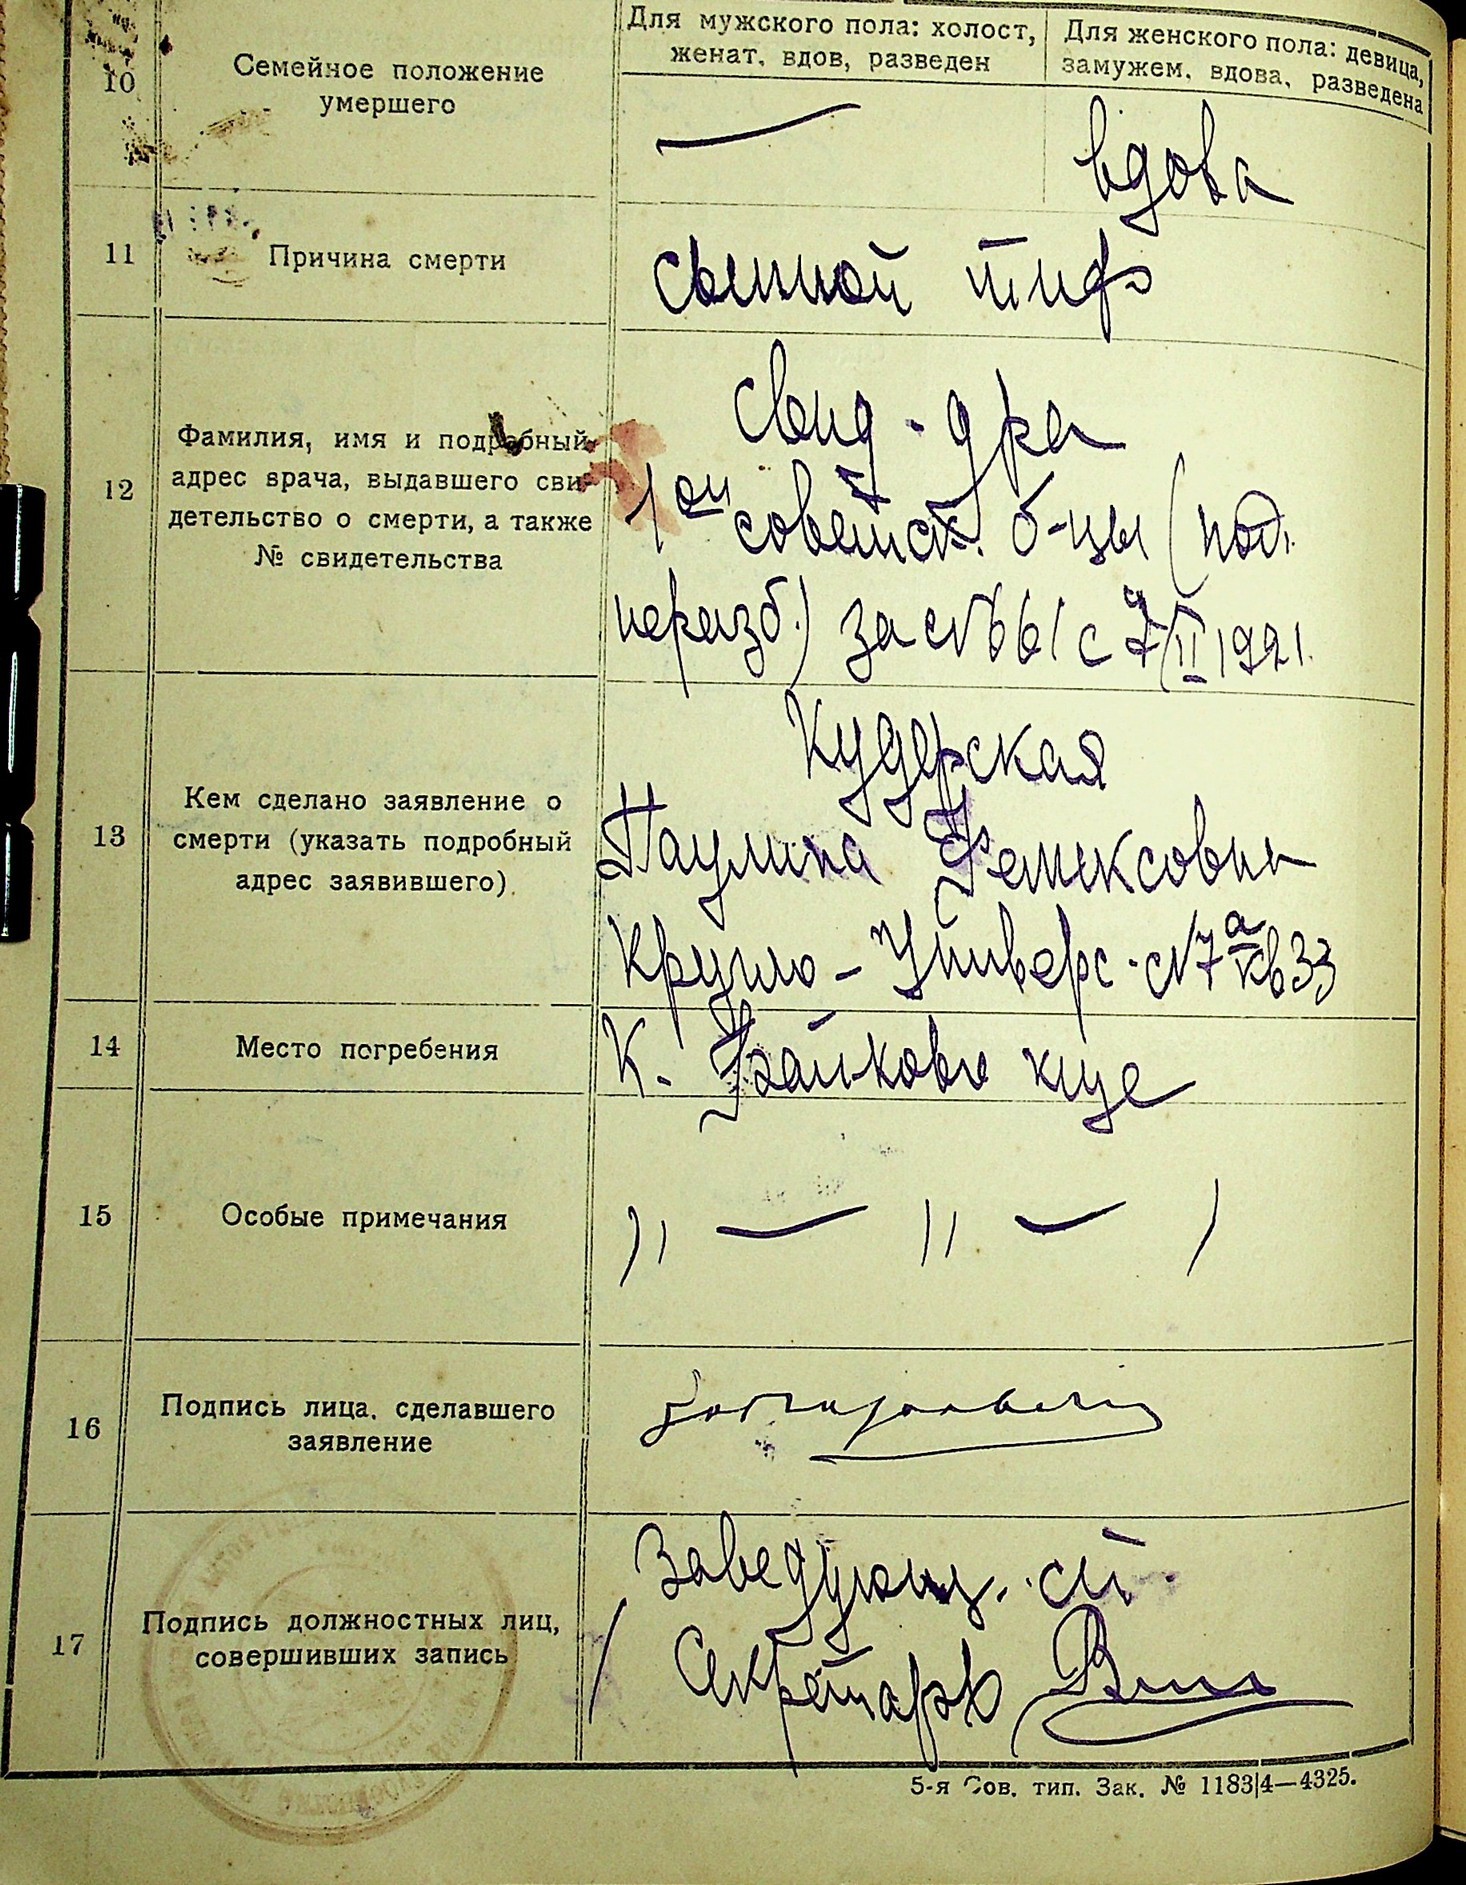 Для мужского пола: холост, женат, вдов, разведен
Для женского пола: девица, замужем, вдова, разведена
10
Семейное положение
умершего
—
вдова
11
Причина смерти
сыпной тиф
12
Фамилия, имя и подробный
адрес врача, выдавшего сви-
детельство о смерти, а также
№ свидетельства
свид. д-ра
1ой советск. б-цы (под.
неразб.) за № 61 с 7/II 1921.
13
Кем сделано заявление о
смерти (указать подробный
адрес заявившего)
Кудерская
Паулина Феликсовна
Кругло-Универс. № 7а кв 33
14
Место погребения
К. Байковы кще
15
Особые примечания
— " —
16
Подпись лица, сделавшего
заявление
17
Подпись должностных лиц,
совершивших запись
Заведующ. ст.
Секретарь
5-я Сов. тип. Зак. № 1183|4—4325.